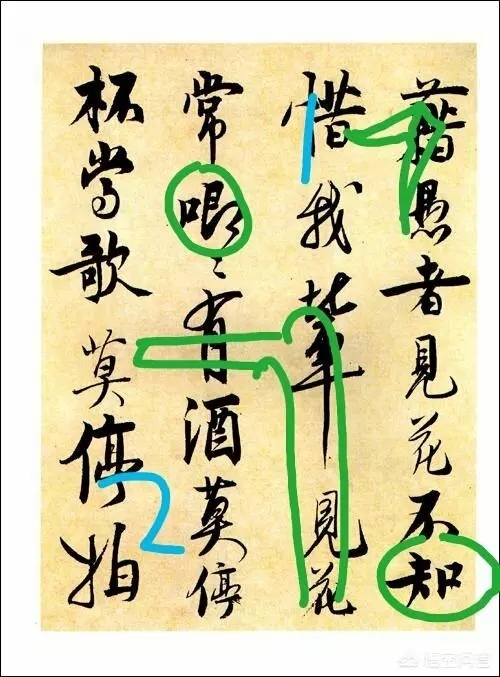 藉愚者見花不知
惜我輩見花
常唧〻有酒莫停
杯當歌莫停拍
1
2
悟空问答